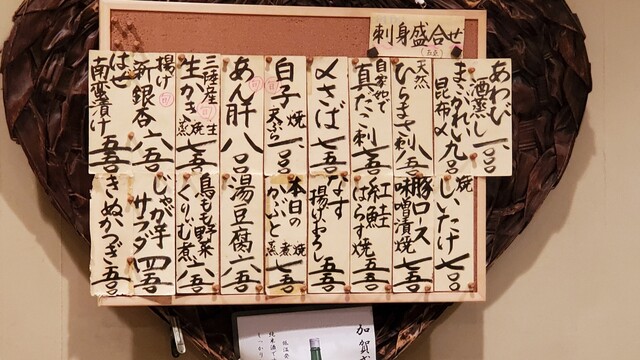 刺身盛合せ
あわび
酒蒸し
まこがれい 九〇
昆布〆
天然
ひらまさ刺 八五〇
自家ゆで
真だこ刺 七五〇
〆さば 七五〇
白子 焼
天ぷら
あん肝 八〇〇
三陸産
生かき 生
焼
蒸
揚げ
新銀杏 六五〇
はぜ
南蛮漬け 五五〇
しいたけ 焼 七〇〇
豚ロース
味噌漬焼 七五〇
紅鮭
はらす焼 五五〇
なす
揚げおろし 五五〇
本日の
かぶと 煮
蒸 七五〇
湯豆腐 六五〇
鳥もも野菜
くりーむ煮 六五〇
じゃが芋
サラダ 四五〇
きぬかつぎ 五五〇
加賀
純米酒で